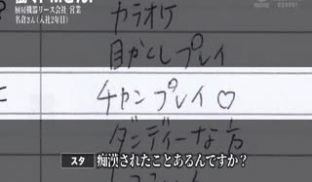 厨房機器リース会社 営業
名倉さん(入社2年目)
カラオケ
目かくしプレイ
チカンプレイ♡
ダンディーな方
スタ 痴漢されたことあるんですか?